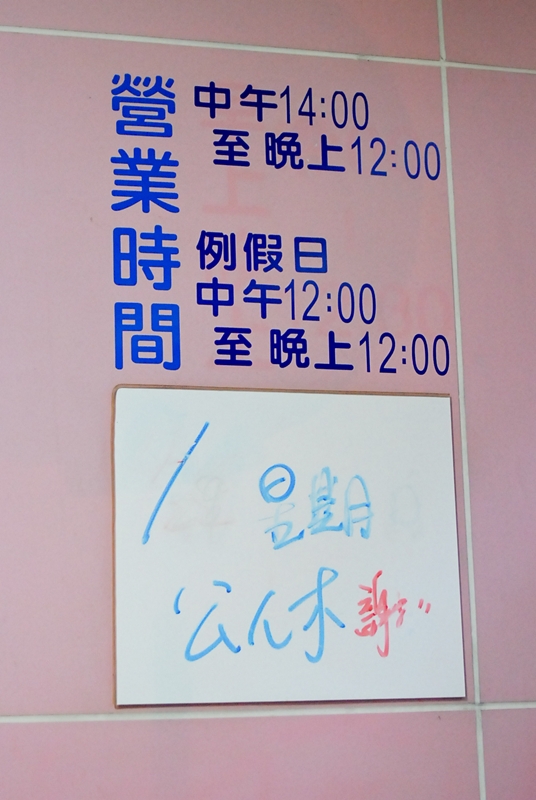 營業時間
中午14:00
至 晚上12:00
例假日
中午12:00
至 晚上12:00
星期
公休 謝謝